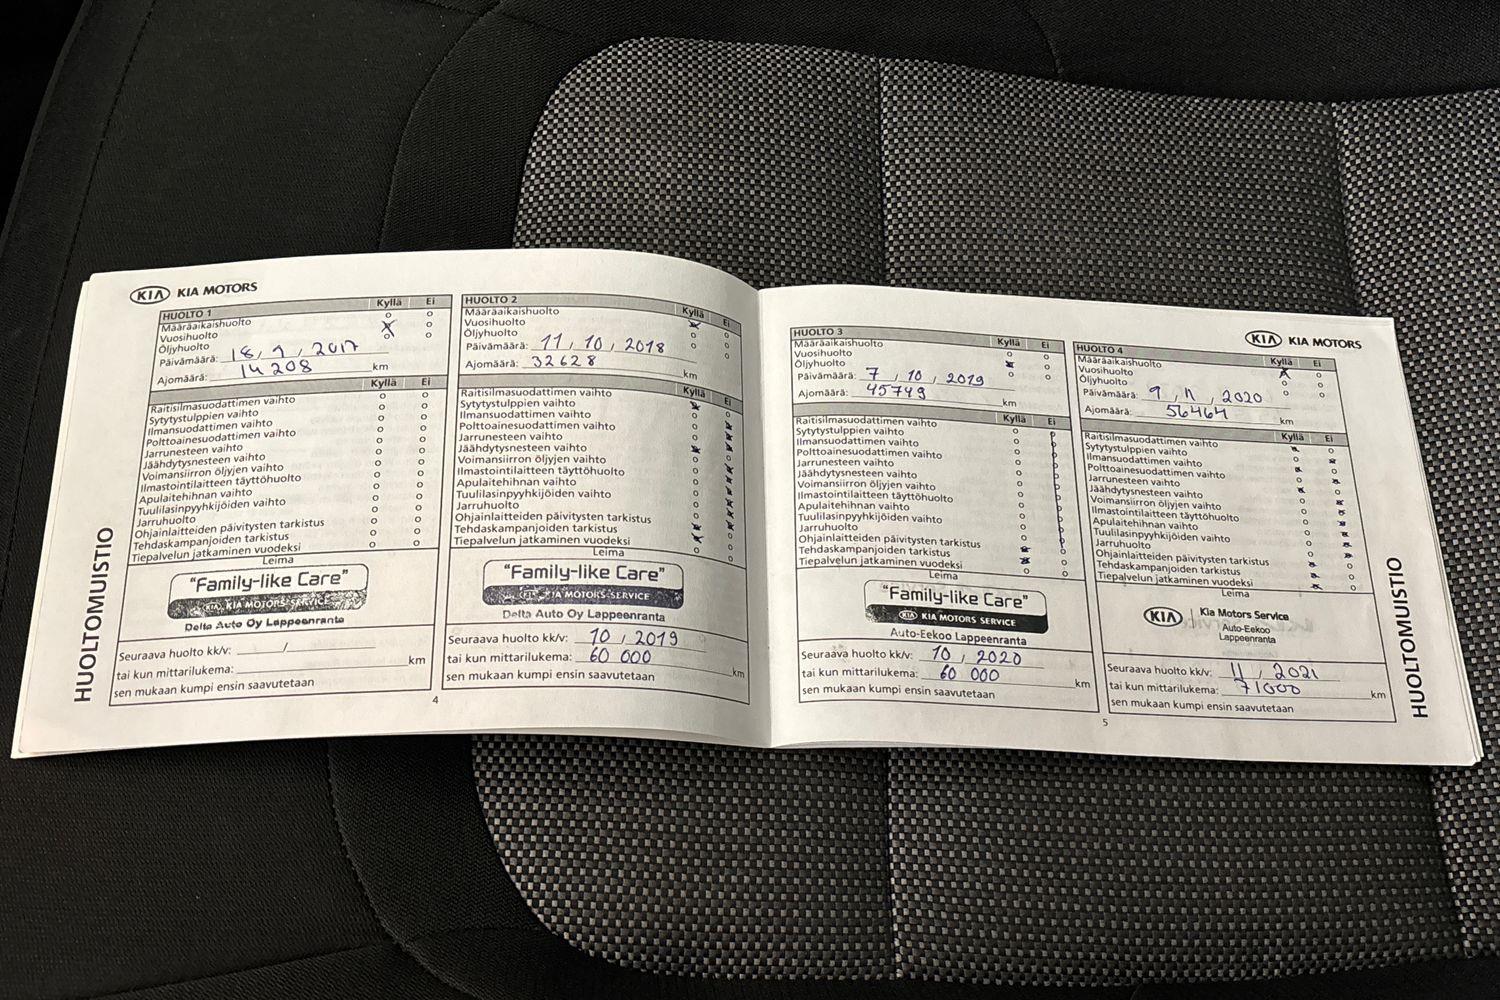 KIA KIA MOTORS
HUOLTOMUISTIO
HUOLTO 1
Kyllä Ei
Määräaikaishuolto
Vuosihuolto
Öljyhuolto
Päivämäärä: 18, 9, 2017
Ajomäärä: 14 208 km
Kyllä Ei
Raitisilmasuodattimen vaihto
Sytytystulppien vaihto
Ilmansuodattimen vaihto
Polttoainesuodattimen vaihto
Jarrunesteen vaihto
Jäähdytysnesteen vaihto
Voimansiirron öljyjen vaihto
Ilmastointilaitteen täyttöhuolto
Apulaitehihnan vaihto
Tuulilasinpyyhkijöiden vaihto
Jarruhuolto
Ohjainlaitteiden päivitysten tarkistus
Tehdaskampanjoiden tarkistus
Tiepalvelun jatkaminen vuodeksi
Leima
"Family-like Care"
KIA KIA MOTORS SERVICE
Delta Auto Oy Lappeenranta
Seuraava huolto kk/v: /
tai kun mittarilukema: km
sen mukaan kumpi ensin saavutetaan
HUOLTO 2
Kyllä Ei
Määräaikaishuolto
Vuosihuolto
Öljyhuolto
Päivämäärä: 11, 10, 2018
Ajomäärä: 32628 km
Kyllä Ei
Raitisilmasuodattimen vaihto
Sytytystulppien vaihto
Ilmansuodattimen vaihto
Polttoainesuodattimen vaihto
Jarrunesteen vaihto
Jäähdytysnesteen vaihto
Voimansiirron öljyjen vaihto
Ilmastointilaitteen täyttöhuolto
Apulaitehihnan vaihto
Tuulilasinpyyhkijöiden vaihto
Jarruhuolto
Ohjainlaitteiden päivitysten tarkistus
Tehdaskampanjoiden tarkistus
Tiepalvelun jatkaminen vuodeksi
Leima
"Family-like Care"
KIA KIA MOTORS SERVICE
Delta Auto Oy Lappeenranta
Seuraava huolto kk/v: 10, 2019
tai kun mittarilukema: 60 000 km
sen mukaan kumpi ensin saavutetaan
4
HUOLTO 3
Kyllä Ei
Määräaikaishuolto
Vuosihuolto
Öljyhuolto
Päivämäärä: 7, 10, 2019
Ajomäärä: 45749 km
Kyllä Ei
Raitisilmasuodattimen vaihto
Sytytystulppien vaihto
Ilmansuodattimen vaihto
Polttoainesuodattimen vaihto
Jarrunesteen vaihto
Jäähdytysnesteen vaihto
Voimansiirron öljyjen vaihto
Ilmastointilaitteen täyttöhuolto
Apulaitehihnan vaihto
Tuulilasinpyyhkijöiden vaihto
Jarruhuolto
Ohjainlaitteiden päivitysten tarkistus
Tehdaskampanjoiden tarkistus
Tiepalvelun jatkaminen vuodeksi
Leima
"Family-like Care"
KIA KIA MOTORS SERVICE
Auto-Eekoo Lappeenranta
Seuraava huolto kk/v: 10, 2020
tai kun mittarilukema: 60 000 km
sen mukaan kumpi ensin saavutetaan
KIA KIA MOTORS
HUOLTO 4
Kyllä Ei
Määräaikaishuolto
Vuosihuolto
Öljyhuolto
Päivämäärä: 9, 11, 2020
Ajomäärä: 56464 km
Kyllä Ei
Raitisilmasuodattimen vaihto
Sytytystulppien vaihto
Ilmansuodattimen vaihto
Polttoainesuodattimen vaihto
Jarrunesteen vaihto
Jäähdytysnesteen vaihto
Voimansiirron öljyjen vaihto
Ilmastointilaitteen täyttöhuolto
Apulaitehihnan vaihto
Tuulilasinpyyhkijöiden vaihto
Jarruhuolto
Ohjainlaitteiden päivitysten tarkistus
Tehdaskampanjoiden tarkistus
Tiepalvelun jatkaminen vuodeksi
Leima
KIA Kia Motors Service
Auto-Eekoo
Lappeenranta
Seuraava huolto kk/v: 11, 2021
tai kun mittarilukema: 71000 km
sen mukaan kumpi ensin saavutetaan
5
HUOLTOMUISTIO